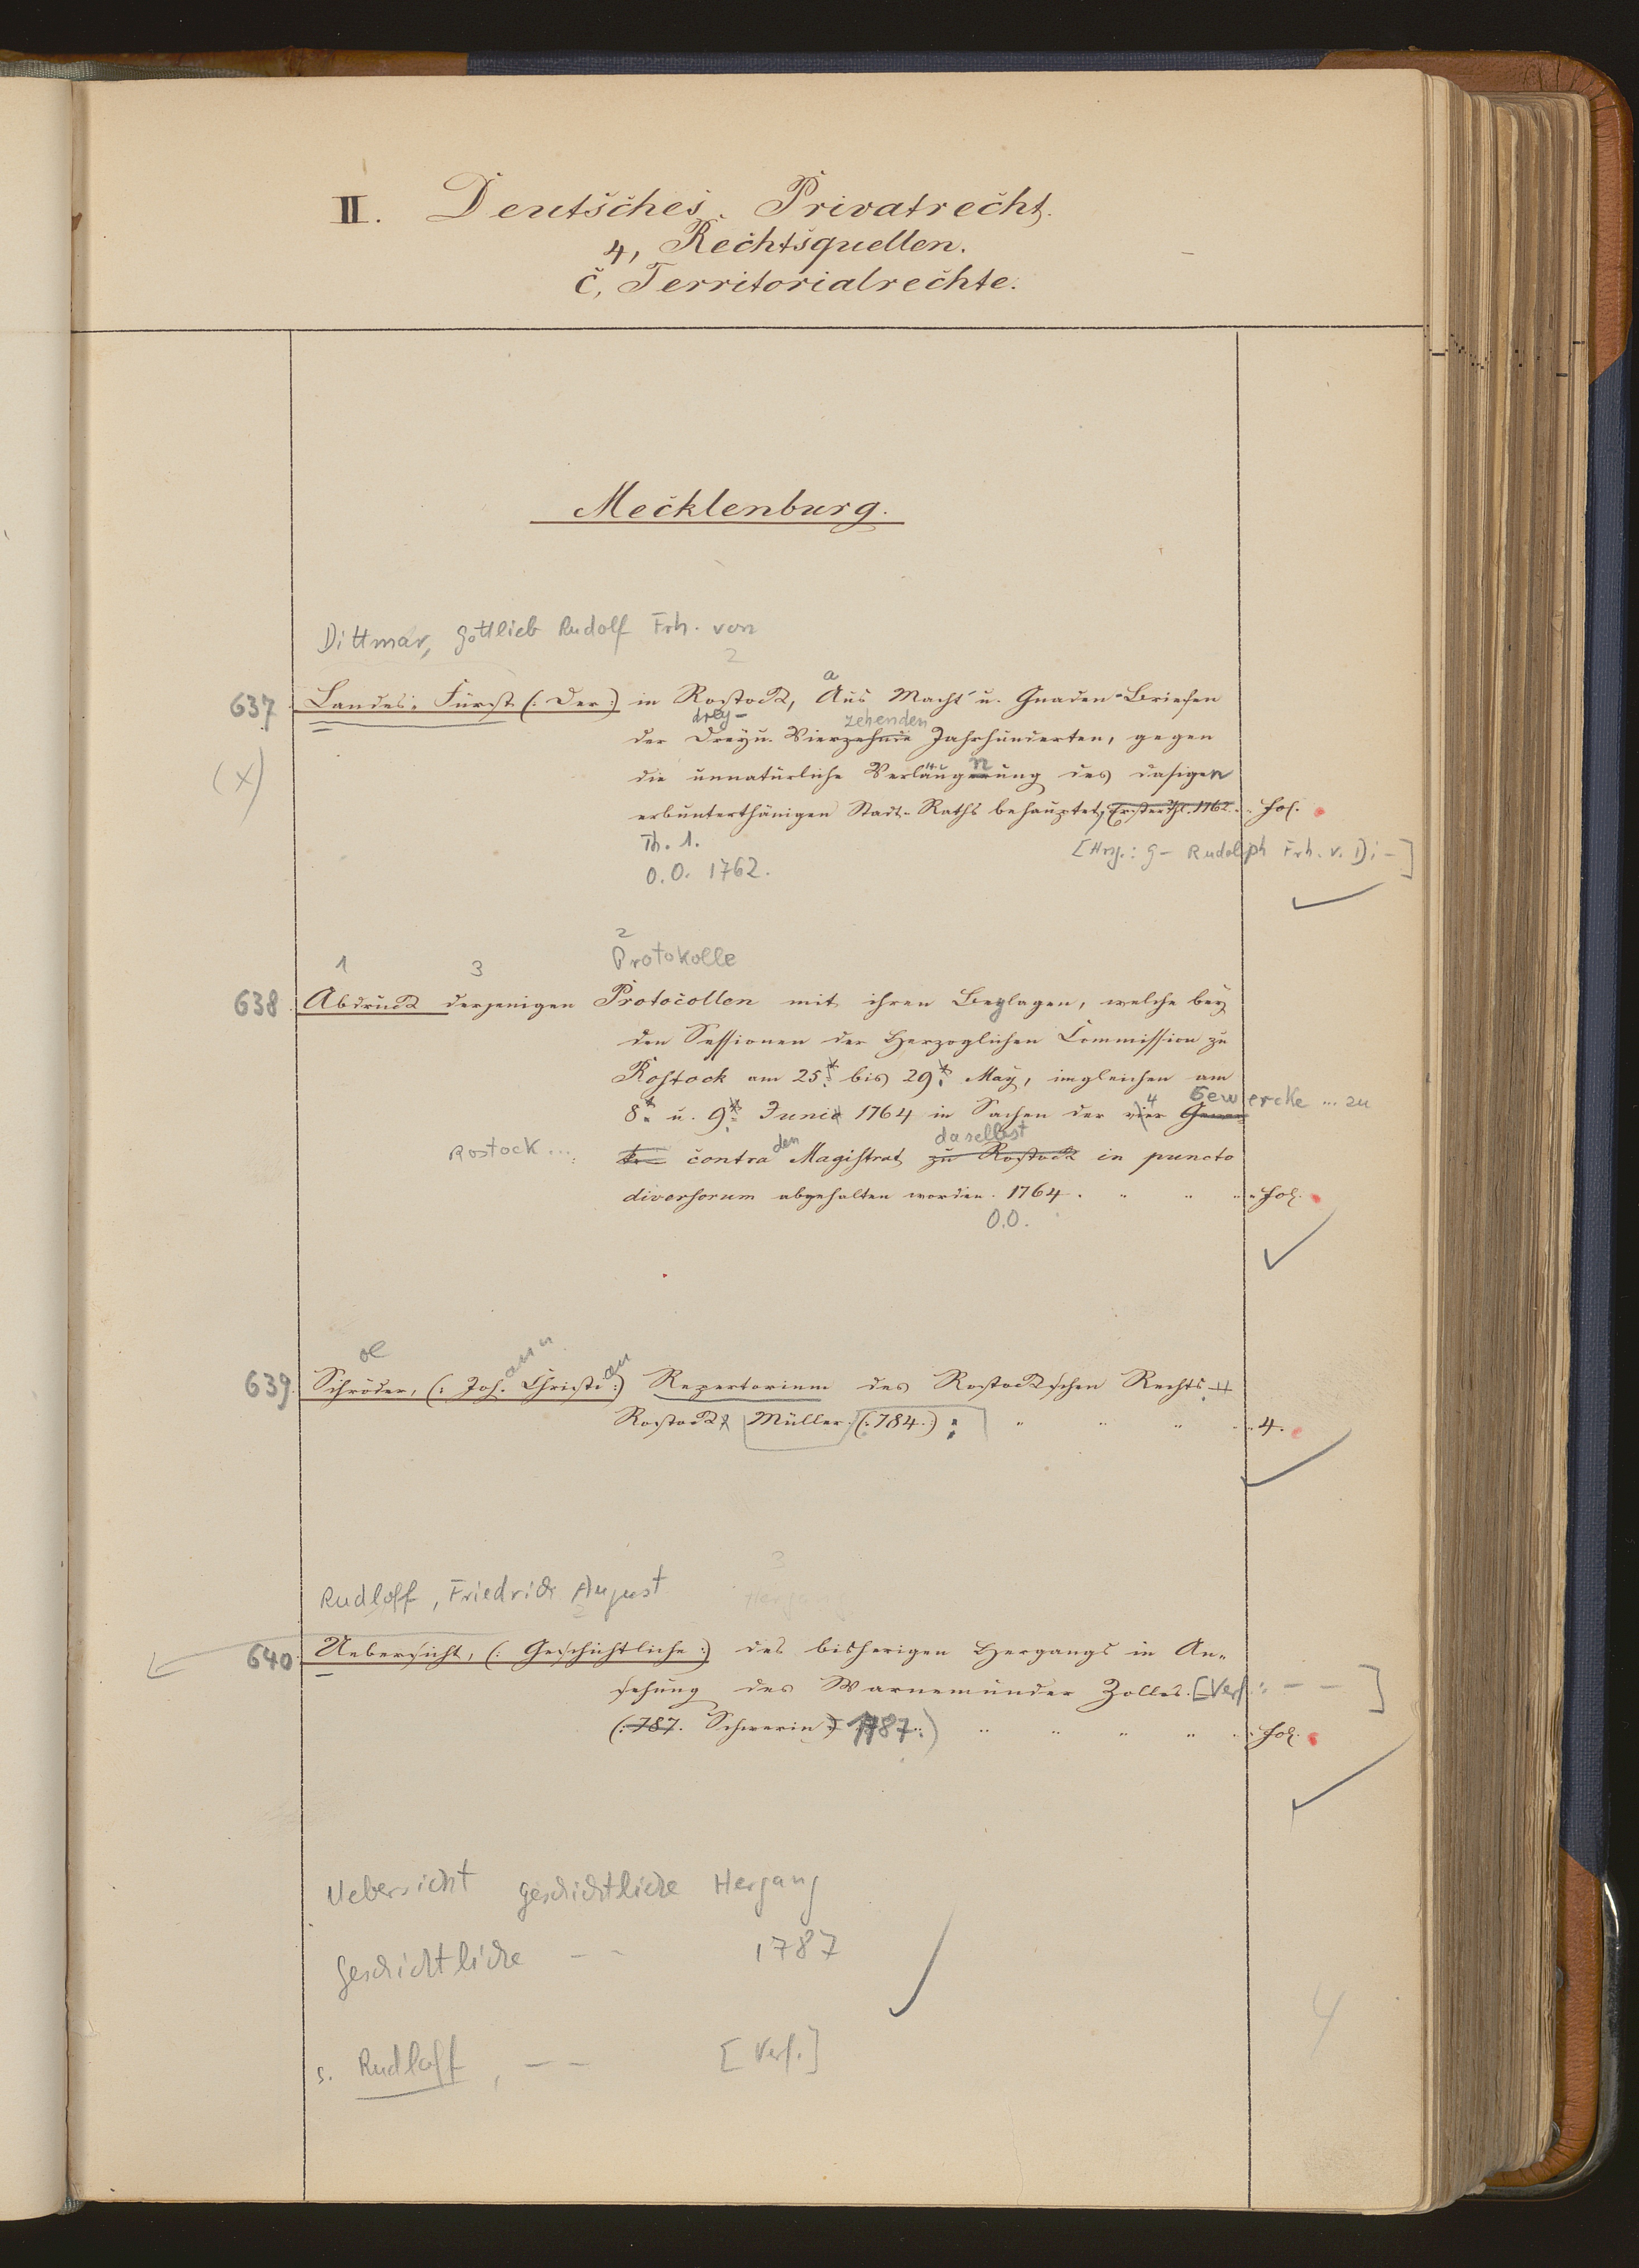 II. Deutsches Privatrecht.
4, Rechtsquellen.
c, Territorialrechte.
Mecklenburg.
Dittmar, Gottlieb Rudolf Frh. von
2
637 Landes-Fürst (: Der :) in Rostock, Aus Macht u. Gnaden-Briefen
a
drey- zehenden
der Drey u. Vierzehnde Jahrhunderten, gegen
(x) die unnatürliche Verläugnung des dasigen
erbunterthänigen Stadt-Raths behauptet, Erster Thl. 1762. Fol.
Th. 1.
[Hrsg.: G- Rudolph Frh. v. Di-]
O.O. 1762.
2
1 3 Protokolle
638 Abdruck derjenigen Protocollen mit ihren Beylagen, welche bey
den Sessionen der Herzoglichen Commission zu
Rostock am 25t bis 29t May, imgleichen am
4 Gewercke ... zu
8t u. 9t Junii 1764 in Sachen der vier
Rostock ... den daselbst
contra Magistrat zu Rostock in puncto
diversorum abgehalten worden. 1764. Fol.
O.O.
oe ann an
639 Schröder, (: Joh. Christi :) Repertorium des Rostockschen Rechts
Rostock, Müller (:784.:) 4.
3
Rudloff, Friedrich August Hergang
2
640 Uebersicht, (: Geschichtliche :) des bisherigen Hergangs in An-
sehung des Warnemünder Zolles. [Verf.: - - ]
(:787. Schwerin 1787:) Fol.
Uebersicht geschichtliche Hergang
geschichtliche - - 1787
s. Rudloff, - - [Verf.]
4